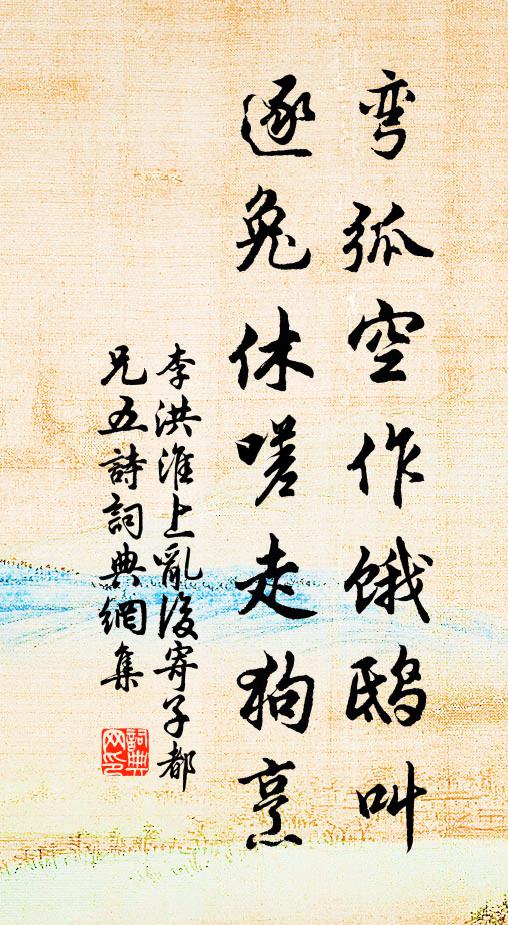 弯弧空作饿鸱叫
逐兔休嗟走狗烹
李洪淮上亂後寄子都
兄五詩詞典網集
詞典网印